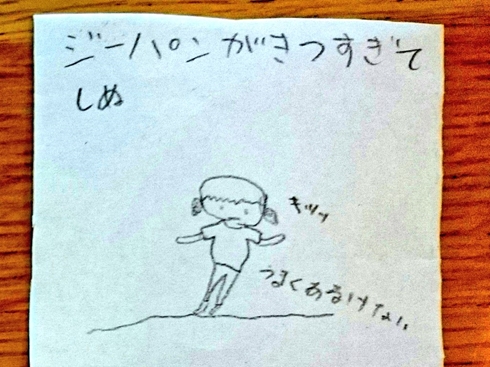 ジーパンがきつすぎて
しぬ
キツッ
うまくあるけない。